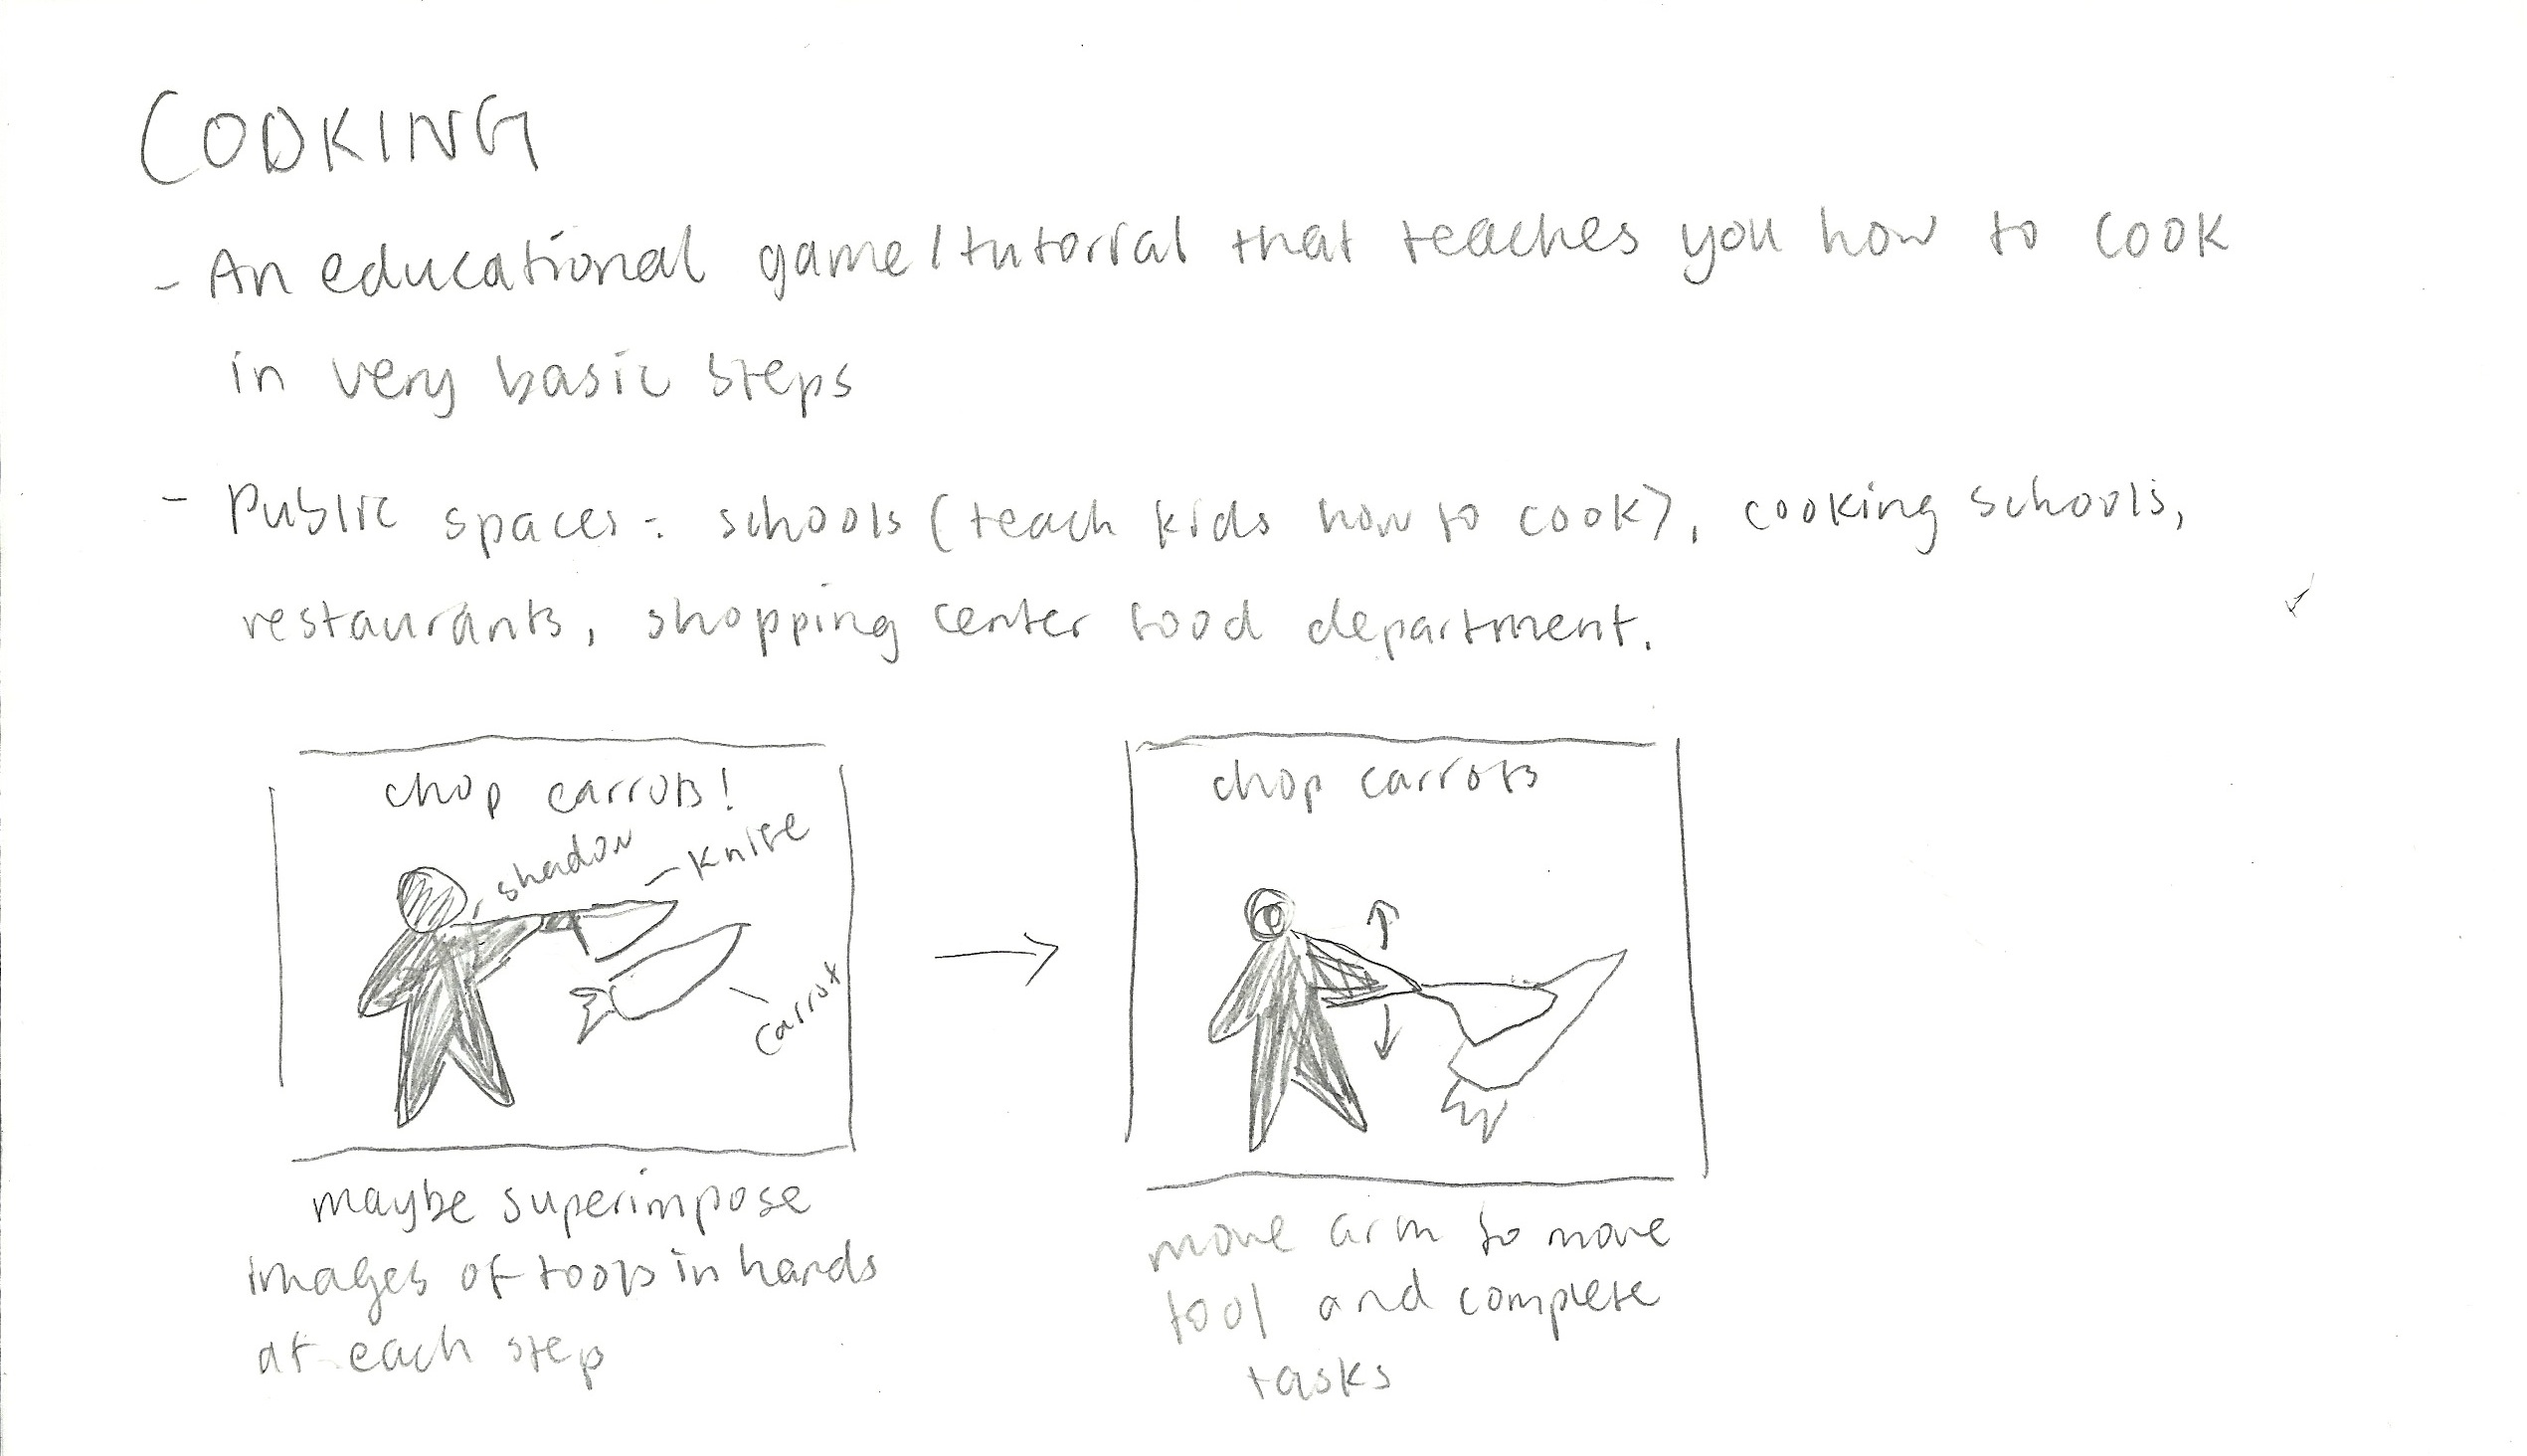 COOKING
- An educational game/tutorial that teaches you how to cook
in very basic steps
- Public spaces: schools (teach kids how to cook), cooking schools,
restaurants, shopping center food department.
chop carrots!
shadow
knife
carrot
maybe superimpose
images of tools in hands
at each step
chop carrots
move arm to move
tool and complete
tasks